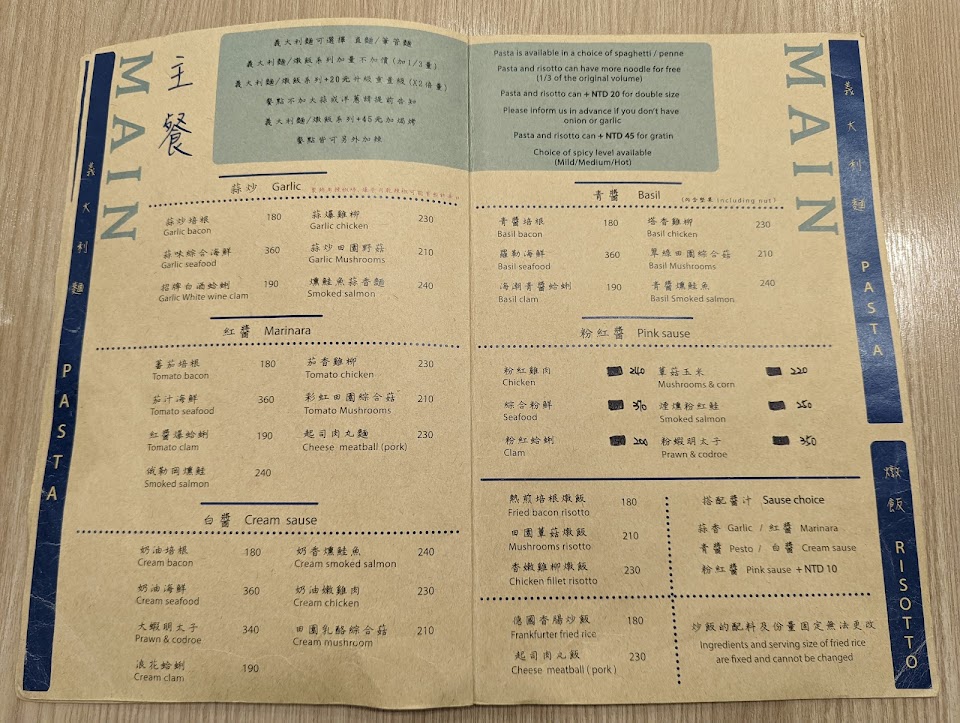 MAIN
主餐
義大利麵可選擇 直麵/筆管麵
義大利麵/燉飯系列加量不加價 (加1/3量)
義大利麵/燉飯系列+20元升級重量級 (X2倍量)
餐點不加大蒜或洋蔥請提前告知
義大利麵/燉飯系列+45元加焗烤
餐點皆可另外加辣
義大利麵 PASTA
蒜炒 Garlic
蒜炒培根 180
Garlic bacon
蒜爆雞柳 230
Garlic chicken
蒜味綜合海鮮 360
Garlic seafood
蒜炒田園野菇 210
Garlic Mushrooms
招牌白酒蛤蜊 190
Garlic White wine clam
燻鮭魚蒜香麵 240
Smoked salmon
紅醬 Marinara
蕃茄培根 180
Tomato bacon
茄香雞柳 230
Tomato chicken
茄汁海鮮 360
Tomato seafood
彩虹田園綜合菇 210
Tomato Mushrooms
紅醬爆蛤蜊 190
Tomato clam
起司肉丸麵 230
Cheese meatball (pork)
俄勒岡燻鮭 240
Smoked salmon
白醬 Cream sause
奶油培根 180
Cream bacon
奶香燻鮭魚 240
Cream smoked salmon
奶油海鮮 360
Cream seafood
奶油嫩雞肉 230
Cream chicken
大蝦明太子 340
Prawn & codroe
田園乳酪綜合菇 210
Cream mushroom
浪花蛤蜊 190
Cream clam
Pasta is available in a choice of spaghetti / penne
Pasta and risotto can have more noodle for free
(1/3 of the original volume)
Pasta and risotto can + NTD 20 for double size
Please inform us in advance if you don't have
onion or garlic
Pasta and risotto can + NTD 45 for gratin
Choice of spicy level available
(Mild/Medium/Hot)
MAIN
義大利麵 PASTA
青醬 Basil (内含堅果 including nut)
青醬培根 180
Basil bacon
塔香雞柳 230
Basil chicken
羅勒海鮮 360
Basil seafood
翠綠田園綜合菇 210
Basil Mushrooms
海潮青醬蛤蜊 190
Basil clam
青醬燻鮭魚 240
Basil Smoked salmon
粉紅醬 Pink sause
粉紅雞肉 240
Chicken
蕈菇玉米 220
Mushrooms & corn
綜合粉鮮 370
Seafood
煙燻粉紅鮭 250
Smoked salmon
粉紅蛤蜊 200
Clam
粉蝦明太子 350
Prawn & codroe
燉飯 RISOTTO
熱煎培根燉飯 180
Fried bacon risotto
田園蕈菇燉飯 210
Mushrooms risotto
香嫩雞柳燉飯 230
Chicken fillet risotto
搭配醬汁 Sause choice
蒜香 Garlic / 紅醬 Marinara
青醬 Pesto / 白醬 Cream sause
粉紅醬 Pink sause + NTD 10
德國香腸炒飯 180
Frankfurter fried rice
起司肉丸飯 230
Cheese meatball ( pork )
炒飯的配料及份量固定無法更改
Ingredients and serving size of fried rice
are fixed and cannot be changed